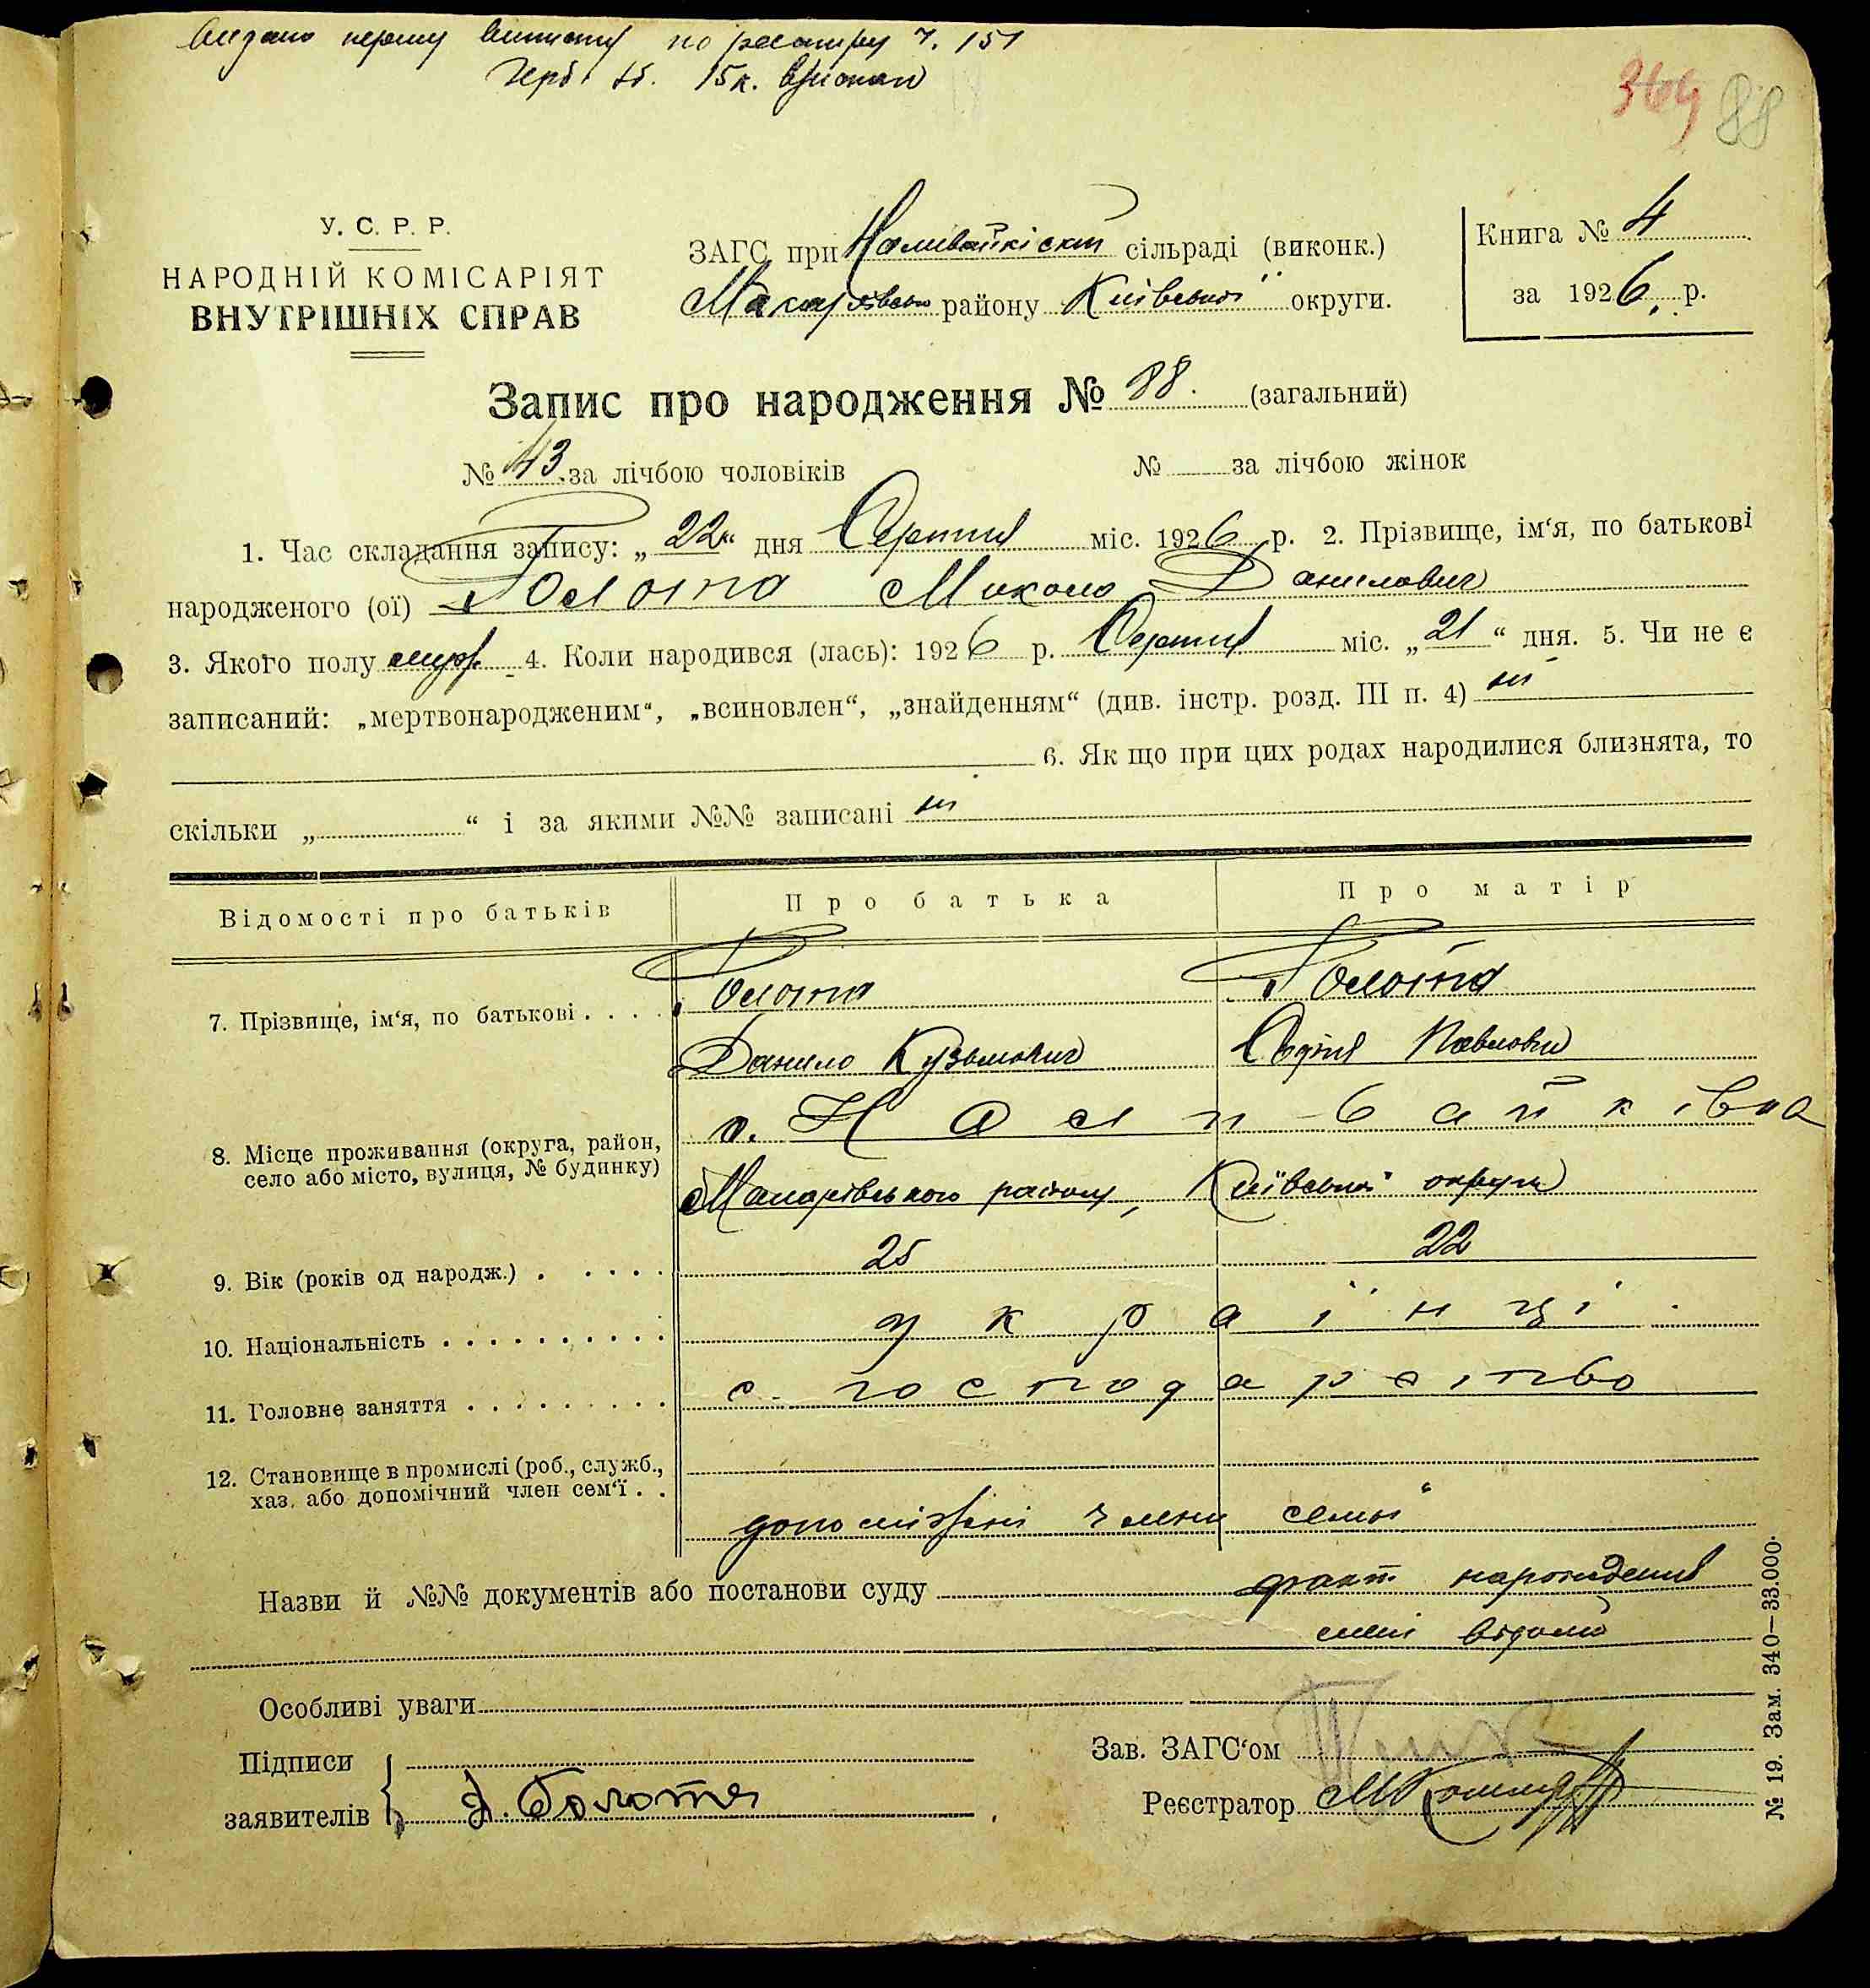 Видано першу виписку по реєстру ч. 151
Герб. зб. 15 к.
364 88
У. С. Р. Р.
НАРОДНІЙ КОМІСАРІЯТ
ВНУТРІШНІХ СПРАВ
ЗАГС при Наливайківськ сільраді (виконк.)
Макарівськ району Київської округи.
Книга № 4
за 1926 р.
Запис про народження № 88. (загальний)
№ 43 за лічбою чоловіків № за лічбою жінок
1. Час складання запису: „22“ дня Серпня міс. 1926 р. 2. Прізвище, ім‘я, по батькові
народженого (ої) Голота Микола Данилович
3. Якого полу муж. 4. Коли народився (лась): 1926 р. Серпня міс. „21“ дня. 5. Чи не є
записаний: „мертвонародженим“, „всиновлен“, „знайденням“ (див. інстр. розд. III п. 4) ні
6. Як що при цих родах народилися близнята, то
скільки „ “ і за якими №№ записані ні
Відомості про батьків Про батька Про матір
7. Прізвище, ім‘я, по батькові . . . . Голота Голота
Данило Кузьмович Софія Павловна
8. Місце проживання (округа, район, село або місто, вулиця, № будинку) с. Наливайківка
Макарівського району, Київської округи
9. Вік (років од народж.) . . . . . 25 22
10. Національність . . . . . . . . . . українці.
11. Головне заняття . . . . . . . . . с. господарство
12. Становище в промислі (роб., служб.,
хаз. або допомічний член сем‘ї . .
допоміжні члени семьї
Назви й №№ документів або постанови суду факт народження
мені відомо
Особливі уваги
Підписи
заявителів Д. Голота
Зав. ЗАГС‘ом
Реєстратор
№ 19. Зам. 340—33.000.